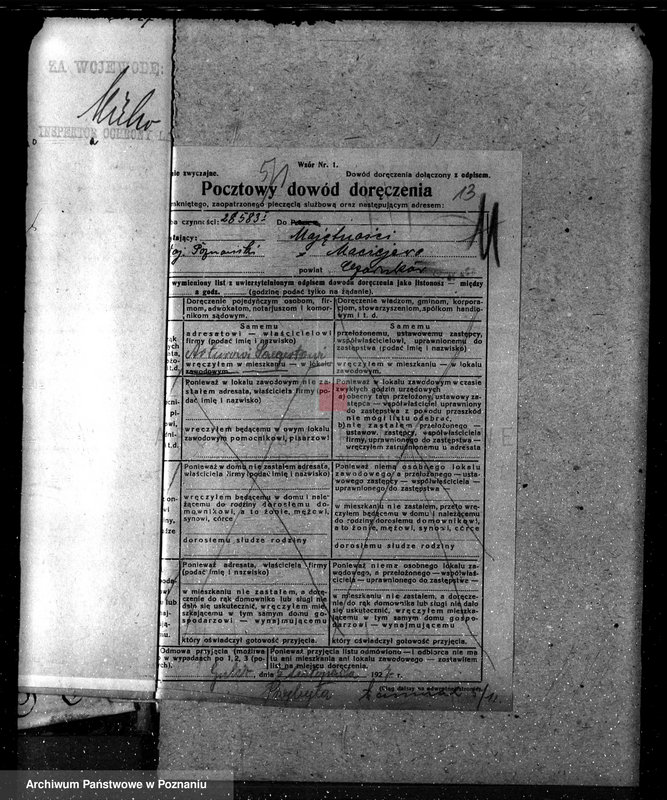 ZA WOJEWODĘ:
INSPEKTOR OCHRONY
Wzór Nr. 1.
nie zwyczajne.
Dowód doręczenia dołączony z odpisem.
5/1
Pocztowy dowód doręczenia
13
mkniętego, zaopatrzonego pieczęcią służbową oraz następującym adresem:
ba czynności: 28583
Do
łający:
Majętności
oj. Poznański
Maciejewo
powiat
Czarnków
wymieniony list z uwierzytelnionym odpisem dowodu doręczenia jako listonosz — między
a godz. (godzinę podać tylko na żądanie).
Doręczenie pojedyńczym osobom, firmom, adwokatom, notarjuszom i komornikom sądowym.
Doręczenie władzom, gminom, korporacjom, stowarzyszeniom, spółkom handlowym i t. d.
Samemu
adresatowi — właścicielowi
firmy (podać imię i nazwisko)
wręczyłem w mieszkaniu — w lokalu
zawodowym.
Samemu
przełożonemu, ustawowemu zastępcy,
współwłaścicielowi, uprawnionemu do
zastępstwa (podać imię i nazwisko)
wręczyłem w mieszkaniu — w lokalu
zawodowym.
Ponieważ w lokalu zawodowym nie zastałem adresata, właściciela firmy (podać imię i nazwisko)
wręczyłem będącemu w owym lokalu
zawodowym pomocnikowi, pisarzowi
Ponieważ w lokalu zawodowym w czasie
zwykłych godzin urzędowych
a) obecny tam przełożony, ustawowy zastępca — współwłaściciel uprawniony
do zastępstwa z powodu przeszkód
nie mógł listu odebrać,
b) nie zastałem przełożonego —
ustawow. zastępcy, współwłaściciela
firmy, uprawnionego do zastępstwa —
wręczyłem zatrudnionemu u adresata
Ponieważ w domu nie zastałem adresata,
właściciela firmy (podać imię i nazwisko)
wręczyłem będącemu w domu i należącemu do rodziny dorosłemu domownikowi, a to żonie, mężowi,
synowi, córce
dorosłemu słudze rodziny
Ponieważ niema osobnego lokalu
zawodowego a przełożonego — ustawowego zastępcy — współwłaściciela —
uprawnionego do zastępstwa —
w mieszkaniu nie zastałem, przeto wręczyłem będącemu w domu i należącemu
do rodziny dorosłemu domownikowi,
a to żonie, mężowi, synowi, córce
dorosłemu słudze rodziny
Ponieważ adresata, właściciela firmy
(podać imię i nazwisko)
w mieszkaniu nie zastałem, a doręczenie do rąk domownika lub sługi nie
dało się uskutecznić, wręczyłem mieszkającemu w tym samym domu gospodarzowi — wynajmującemu
który oświadczył gotowość przyjęcia.
Ponieważ niema osobnego lokalu zawodowego, a przełożonego — współwłaściciela — uprawnionego do zastępstwa —
w mieszkaniu nie zastałem, a doręczenie
do rąk domownika lub sługi nie dało
się uskutecznić, wręczyłem mieszkającemu w tym samym domu gospodarzowi — wynajmującemu
który oświadczył gotowość przyjęcia.
Odmowa przyjęcia (możliwa
w wypadkach po 1, 2, 3 (po
Ponieważ przyjęcia listu odmówiono — i odbiorca nie ma
tu ani mieszkania ani lokalu zawodowego — zostawiłem
list na miejscu doręczenia.
, dnia
192
(Ciąg dalszy na odwrotnej stronie)
Archiwum Państwowe w Poznaniu